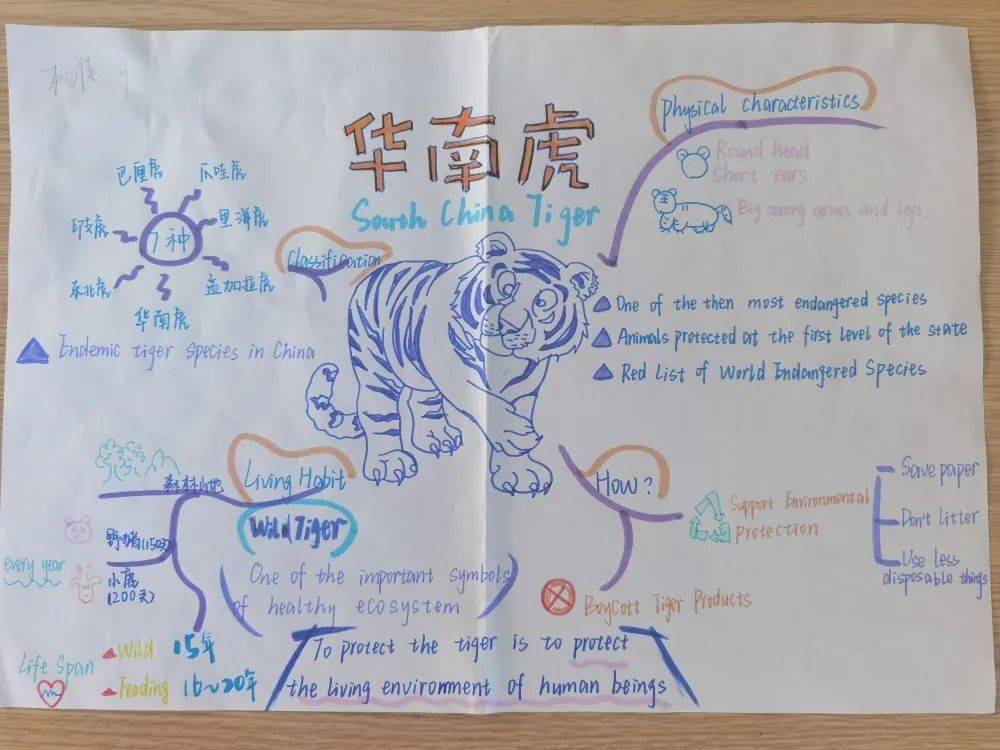 华南虎
South China Tiger
Physical characteristics
Round head
Short ears
Big strong arms and legs.
Classification
巴厘虎
爪哇虎
印支虎
里海虎
7种
东北虎
孟加拉虎
华南虎
Endemic tiger species in China
One of the then most endangered species
Animals protected at the first level of the state
Red List of World Endangered Species
Living Habit
森林山地
Wild Tiger
野猪(150头)
every year
小鹿
(200头)
One of the important symbols
of healthy ecosystem
Life Span
Wild 15年
Feeding 16~20年
How?
Support Environmental
Protection
Save paper
Don't litter
Use less
disposable things
Boycott Tiger Products
To protect the tiger is to protect
the living environment of human beings